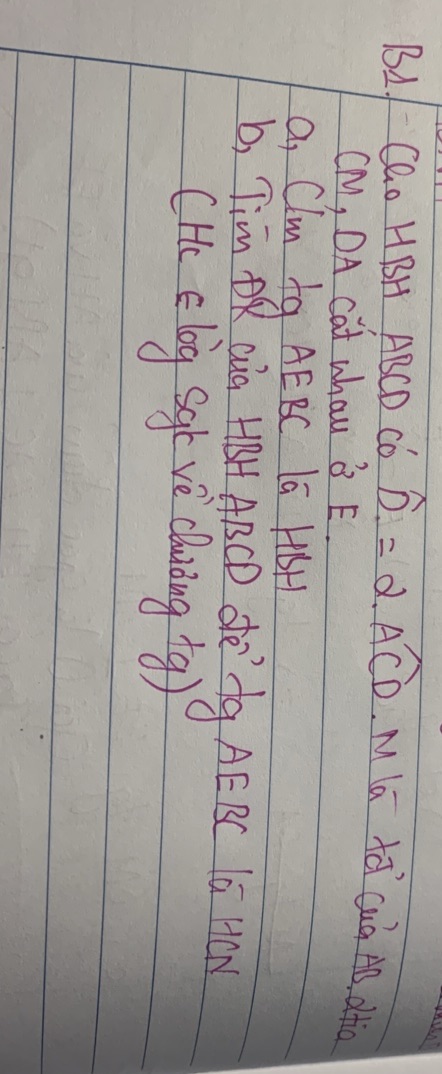 B1. - Cho HBH ABCD có D̂ = 2.AĈD. M là tđ của AB, đthg
CM, DA cắt nhau ở E.
a, C/m tg AEBC là HBH
b, Tìm ĐK của HBH ABCD để tg AEBC là HCN
(Hc ∈ lòg Sgk về chương tg)